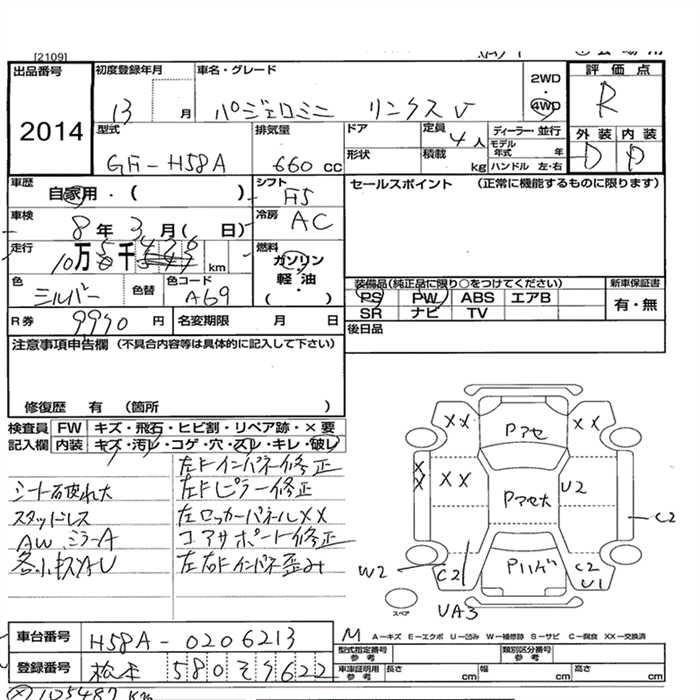 [2109]
出品番号
2014
初度登録年月
13 月
車名・グレード
パジェロミニ リンクスV
2WD
・
4WD
評価点
R
外装 内装
D D
型式
GF-H58A
排気量
660 cc
ドア
形状
定員 4人
積載 kg
ディーラー・並行
モデル年式 年
ハンドル 左・右
車歴
自家用・( )
シフト
F5
車検
8年 3月( 日)
冷房
AC
走行
10万 千 km
燃料
ガソリン
軽油・
( )
色
シルバー
色替
色コード
A69
R券 9990 円
名変期限 月 日
セールスポイント (正常に機能するものに限ります)
装備品(純正品に限り○をつけてください)
PS PW ABS エアB
SR ナビ TV
新車保証書
有・無
後日品
注意事項申告欄 (不具合内容等は具体的に記入して下さい)
修復歴 有 (箇所 )
検査員 FW キズ・飛石・ヒビ割・リペア跡・×要
記入欄 内装 キズ・汚レ・コゲ・穴・スレ・キレ・破レ
左Fインパネ修正
シート破れ大
左Fピラー修正
スタッドレス
左ロッカーパネルXX
AWミラーA
コアサポート修正
各小キズ凹U
左右Fインパネ歪み
XX
XX
PアセPアセ大
XX
XX
U2
C2
W2
C2
Pハゲ
C2
U1
スペア
UA3
車台番号 H58A-0206213
登録番号 松本 580 そ 9622
M A-キズ E-エクボ U-凹み W-補修跡 S-サビ C-腐食 XX-交換済
型式指定番号
参考
類別区分番号
参考
車庫証明用
参考
長さ cm
幅 cm
高さ cm
105487Km